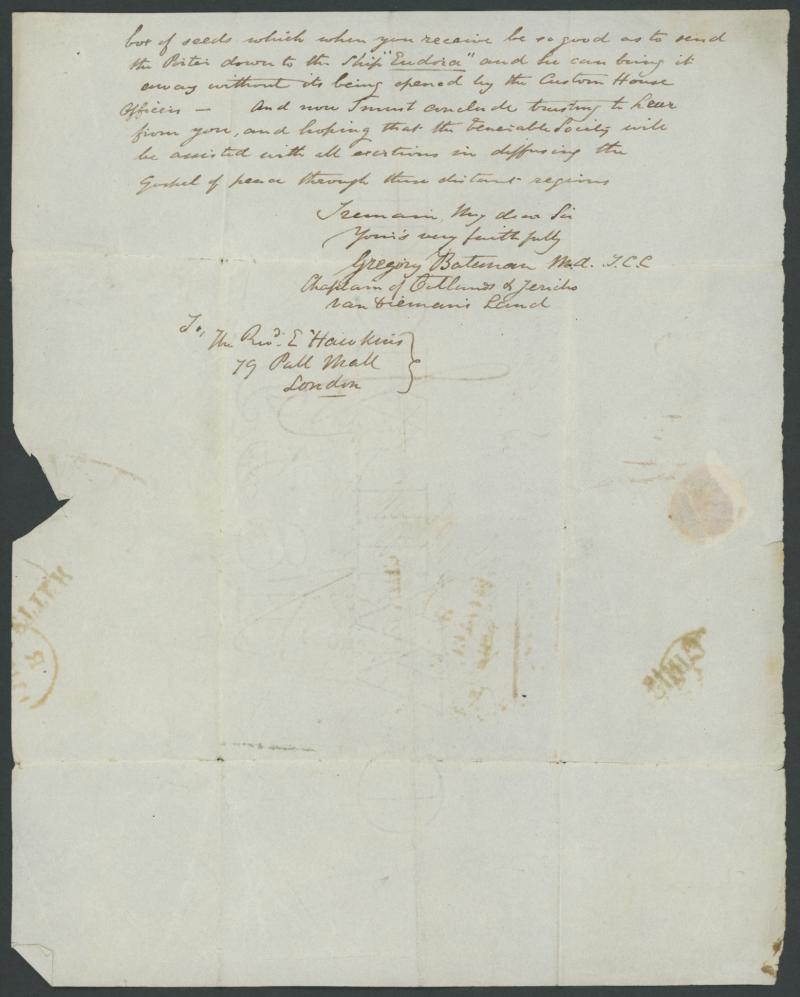 box of seeds which when you receive be so good as to send
the Porter down to the Ship "Eudora" and he can bring it
away without its being opened by the Custom House
Officers — And now I must conclude trusting to hear
from you, and hoping that the Venerable Society will
be assisted with all exertions in diffusing the
Gospel of peace through these distant regions
I remain, My dear Sir
Your's very faithfully
Gregory Bateman M.A. T.C.C
Chaplain of Oatlands & Jericho
Van Dieman's Land
To,
The Revd. E Hawkins
79 Pall Mall
London